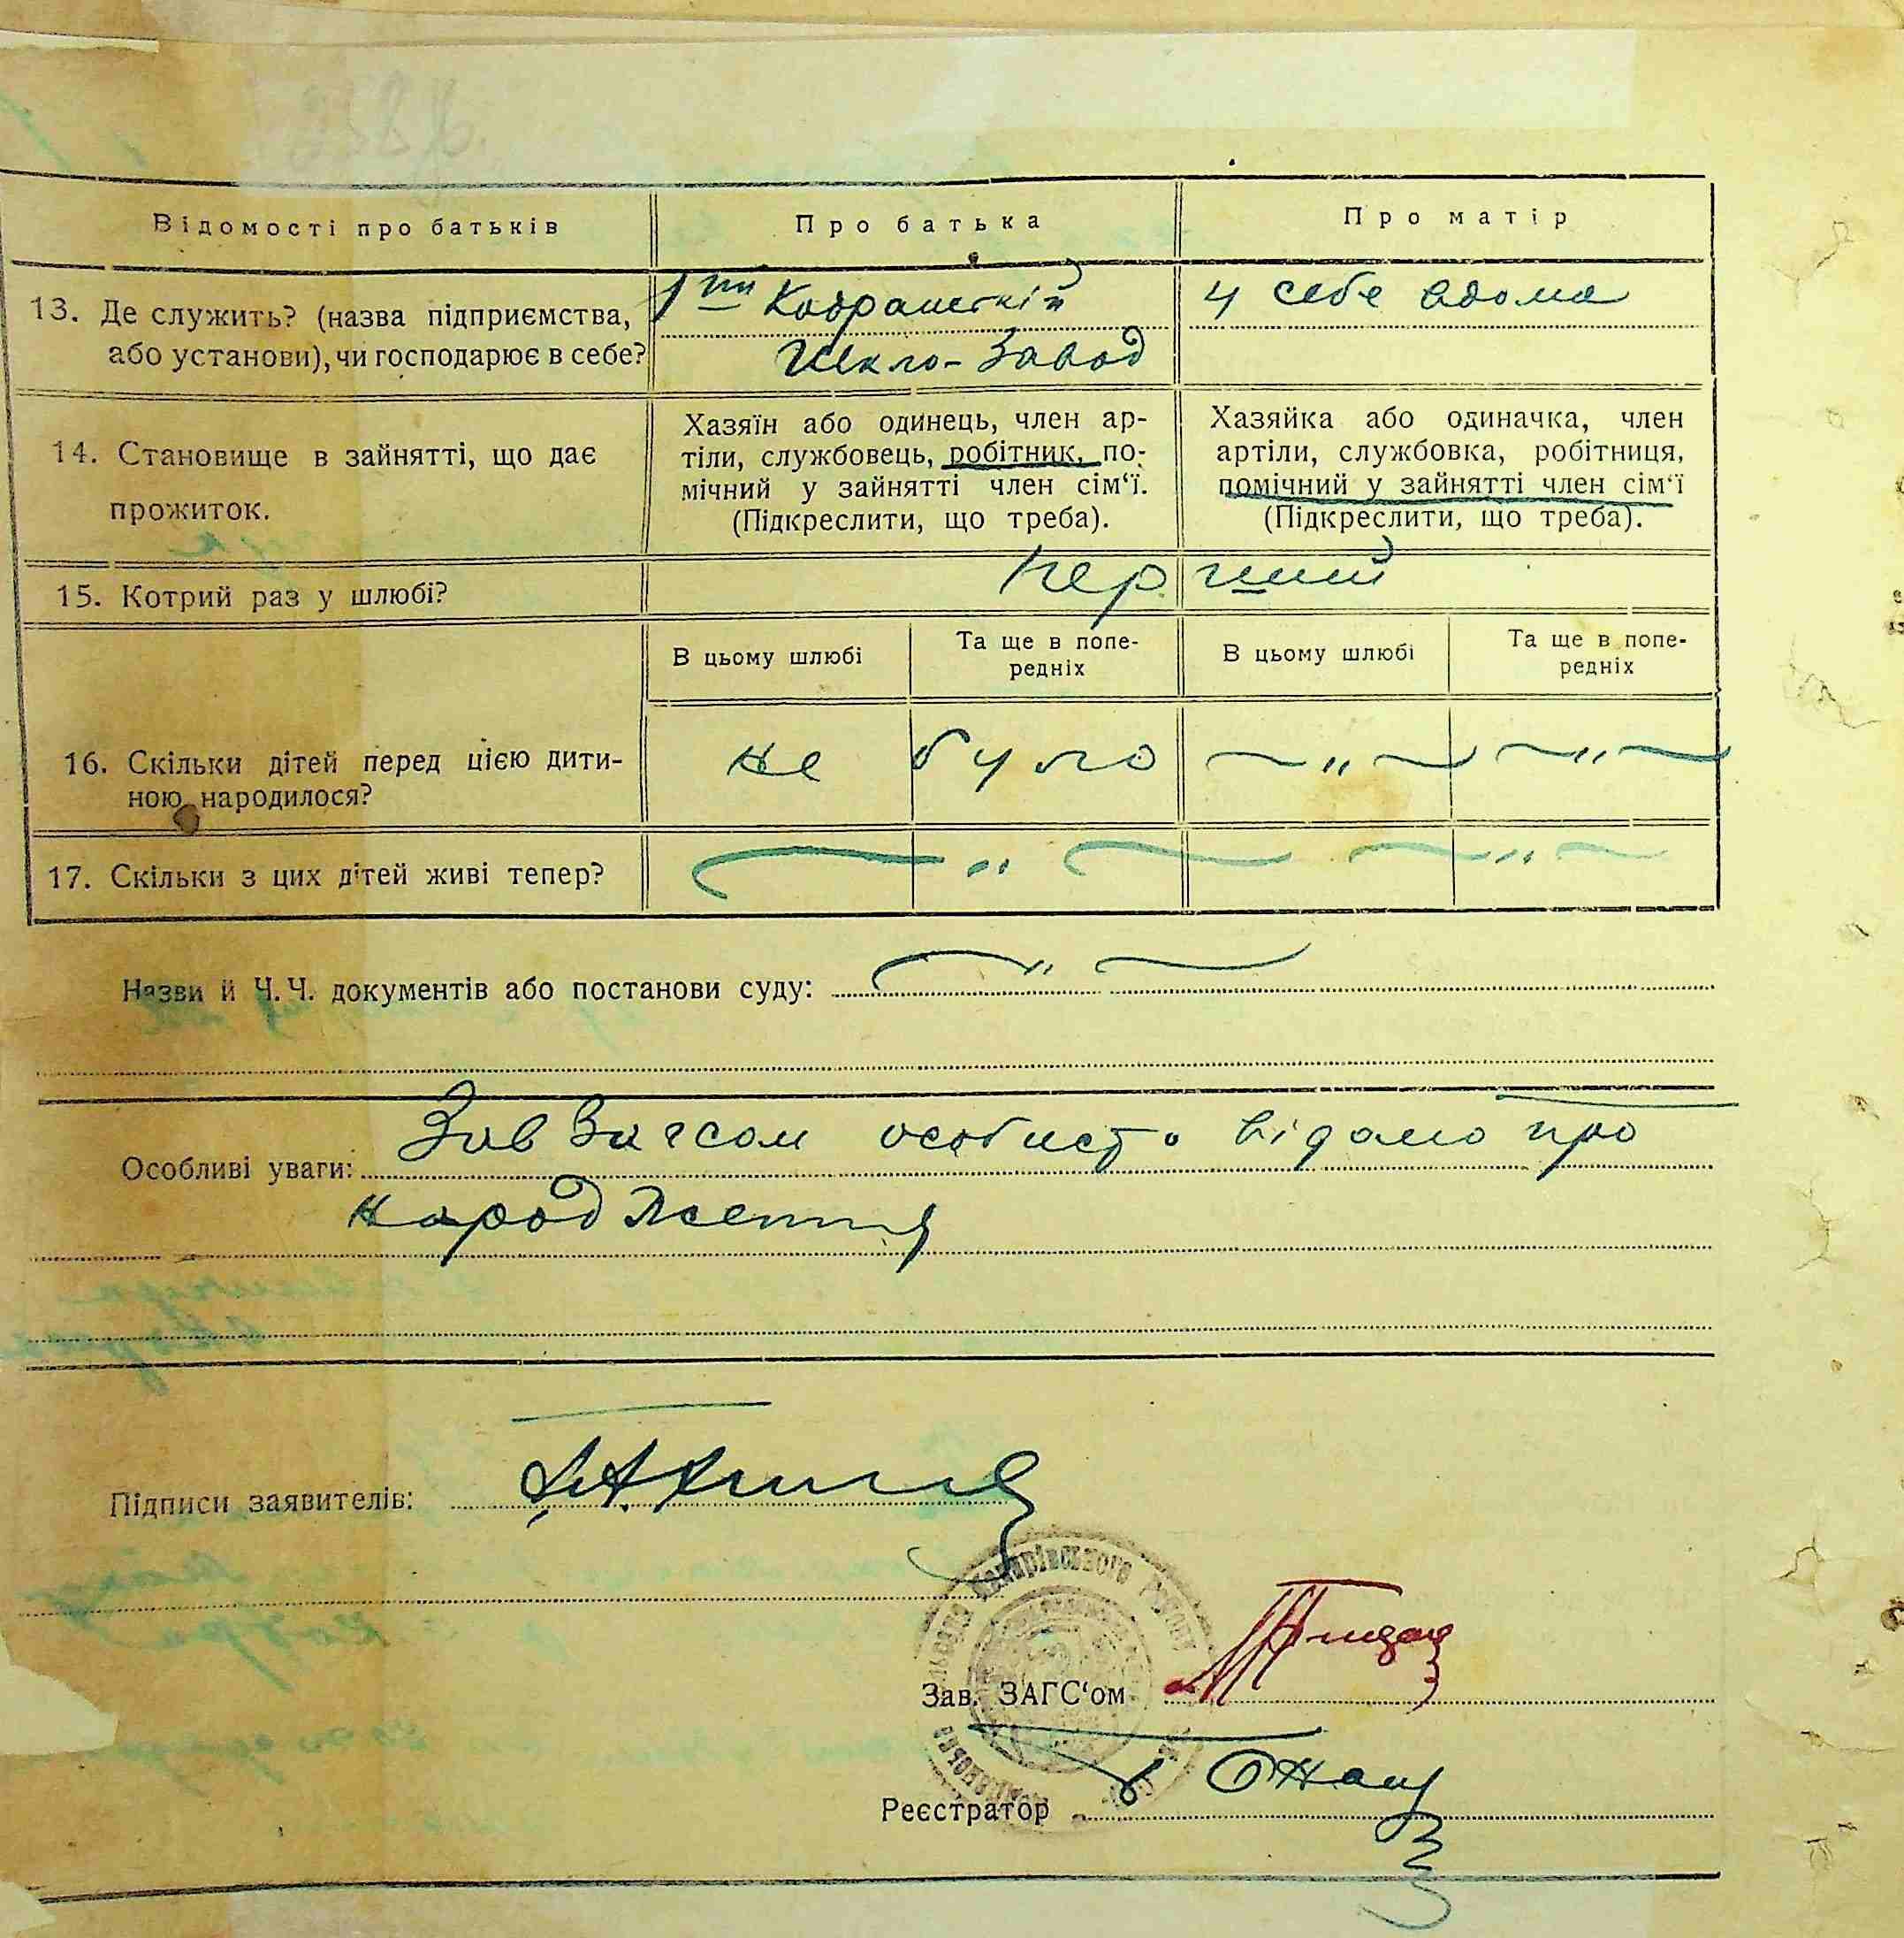 Відомості про батьків
Про батька
Про матір
13. Де служить? (назва підприємства,
або установи), чи господарює в себе?
Шкло-Завод
у себе вдома
14. Становище в зайнятті, що дає
прожиток.
Хазяїн або одинець, член ар-
тіли, службовець, робітник, по-
мічний у зайнятті член сім‘ї.
(Підкреслити, що треба).
Хазяйка або одиначка, член
артіли, службовка, робітниця,
помічний у зайнятті член сім‘ї
(Підкреслити, що треба).
15. Котрий раз у шлюбі?
перший
16. Скільки дітей перед цією дити-
ною народилося?
В цьому шлюбі
Та ще в попе-
редніх
В цьому шлюбі
Та ще в попе-
редніх
не було — „ — — „ —
17. Скільки з цих дітей живі тепер?
— „ — — „ —
Назви й Ч.Ч. документів або постанови суду: — „ —
Особливі уваги: Зав Загсом особисто відомо про
народження
Підписи заявителів:
Макарівського Району
Зав. ЗАГС‘ом
Реєстратор